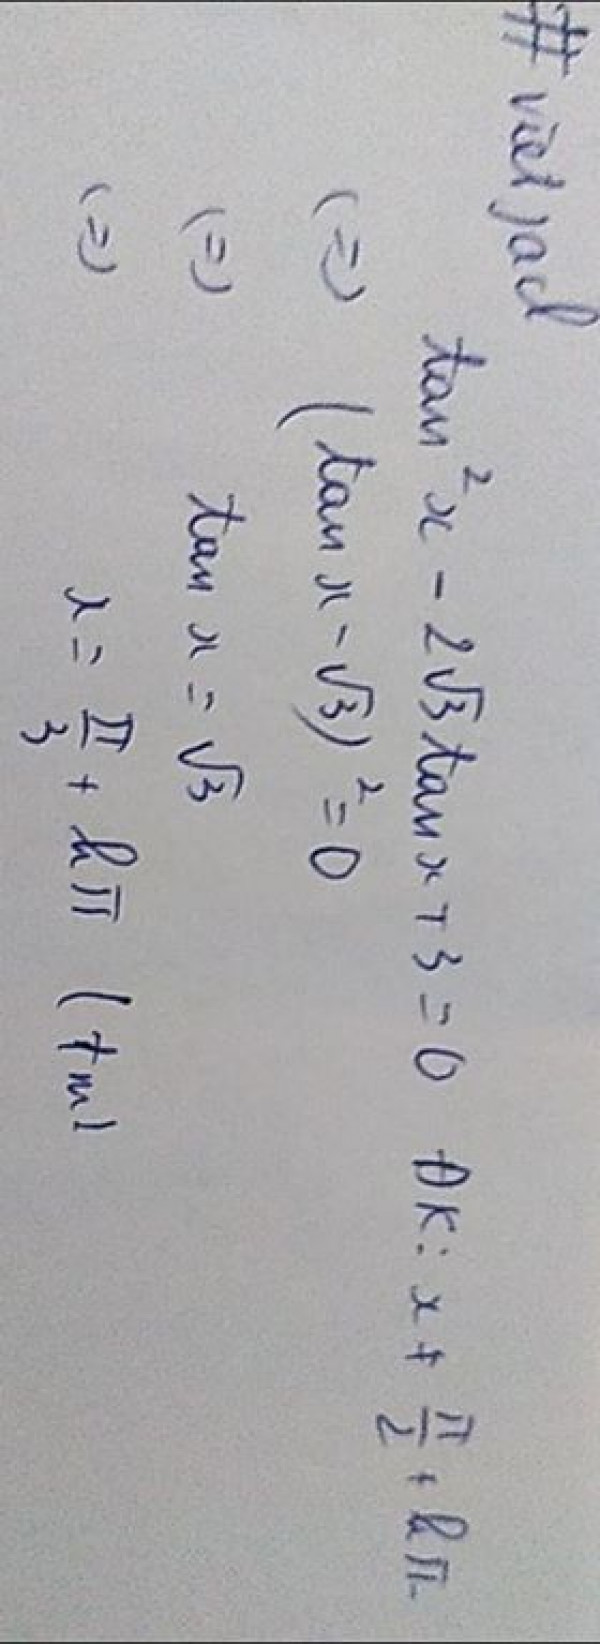 # vietjack
tan²x - 2√3 tan x + 3 = 0 ĐK: x ≠ π/2 + kπ
(=) (tan x - √3)² = 0
(=) tan x = √3
(=) x = π/3 + kπ (tm)